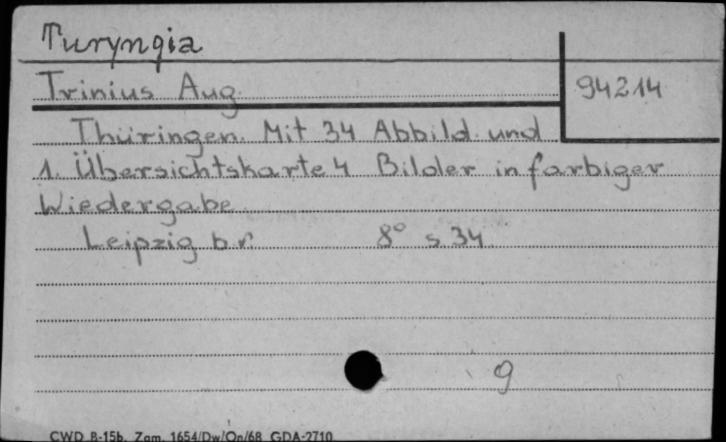 Turyngia
Trinius Aug.
94214
Thüringen. Mit 34 Abbild. und
1. Übersichtskarte 4 Bilder in farbiger
Wiedergabe
Leipzig b.r. 8° s 34
9
CWD B-15b. Zam. 1654/Dw/On/68 GDA-2710